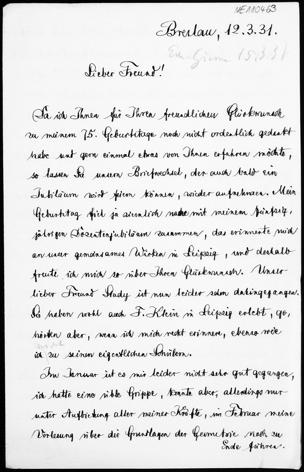 NE110463
Breslau, 12.3.31.
15.3.31
Lieber Freund!
Da ich Ihnen für Ihren freundlichen Glückwunsch
zu meinem 75. Geburtstage noch nicht ordentlich gedankt
habe und gern einmal etwas von Ihnen erfahren möchte,
so lassen Sie unsern Briefwechsel, der auch bald ein
Jubiläum wird feiern können, wieder aufnehmen. Mein
Geburtstag fiel ja ziemlich nahe mit meinem fünfzig-
jährigen Dozentenjubiläum zusammen, das erinnerte mich
an unser gemeinsames Wirken in Leipzig, und deshalb
freute ich mich so über Ihren Glückwunsch. Unser
lieber Freund Study ist nun leider schon dahingegangen.
Sie haben wohl auch F. Klein in Leipzig erlebt, ge-
hörten aber, wenn ich mich recht erinnere, ebenso wie
ich zu seinen eigentlichen Schülern.
Im Januar ist es mir leider nicht sehr gut gegangen,
ich hatte eine üble Grippe, konnte aber, allerdings nur
unter Aufbietung aller meiner Kräfte, im Februar meine
Vorlesung über die Grundlagen der Geometrie noch zu
Ende führen.